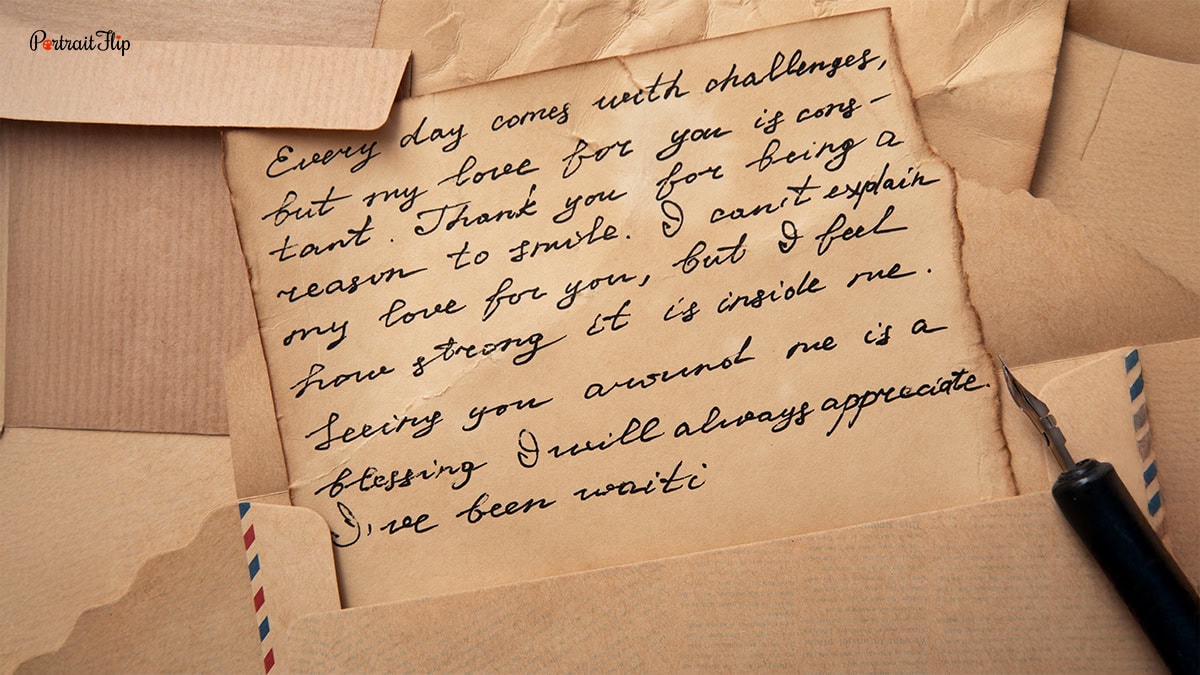 PortraitFlip
Every day comes with challenges,
but my love for you is cons-
tant. Thank you for being a
reason to smile. I can't explain
my love for you, but I feel
how strong it is inside me.
Seeing you around me is a
blessing I will always appreciate.
I've been waiti